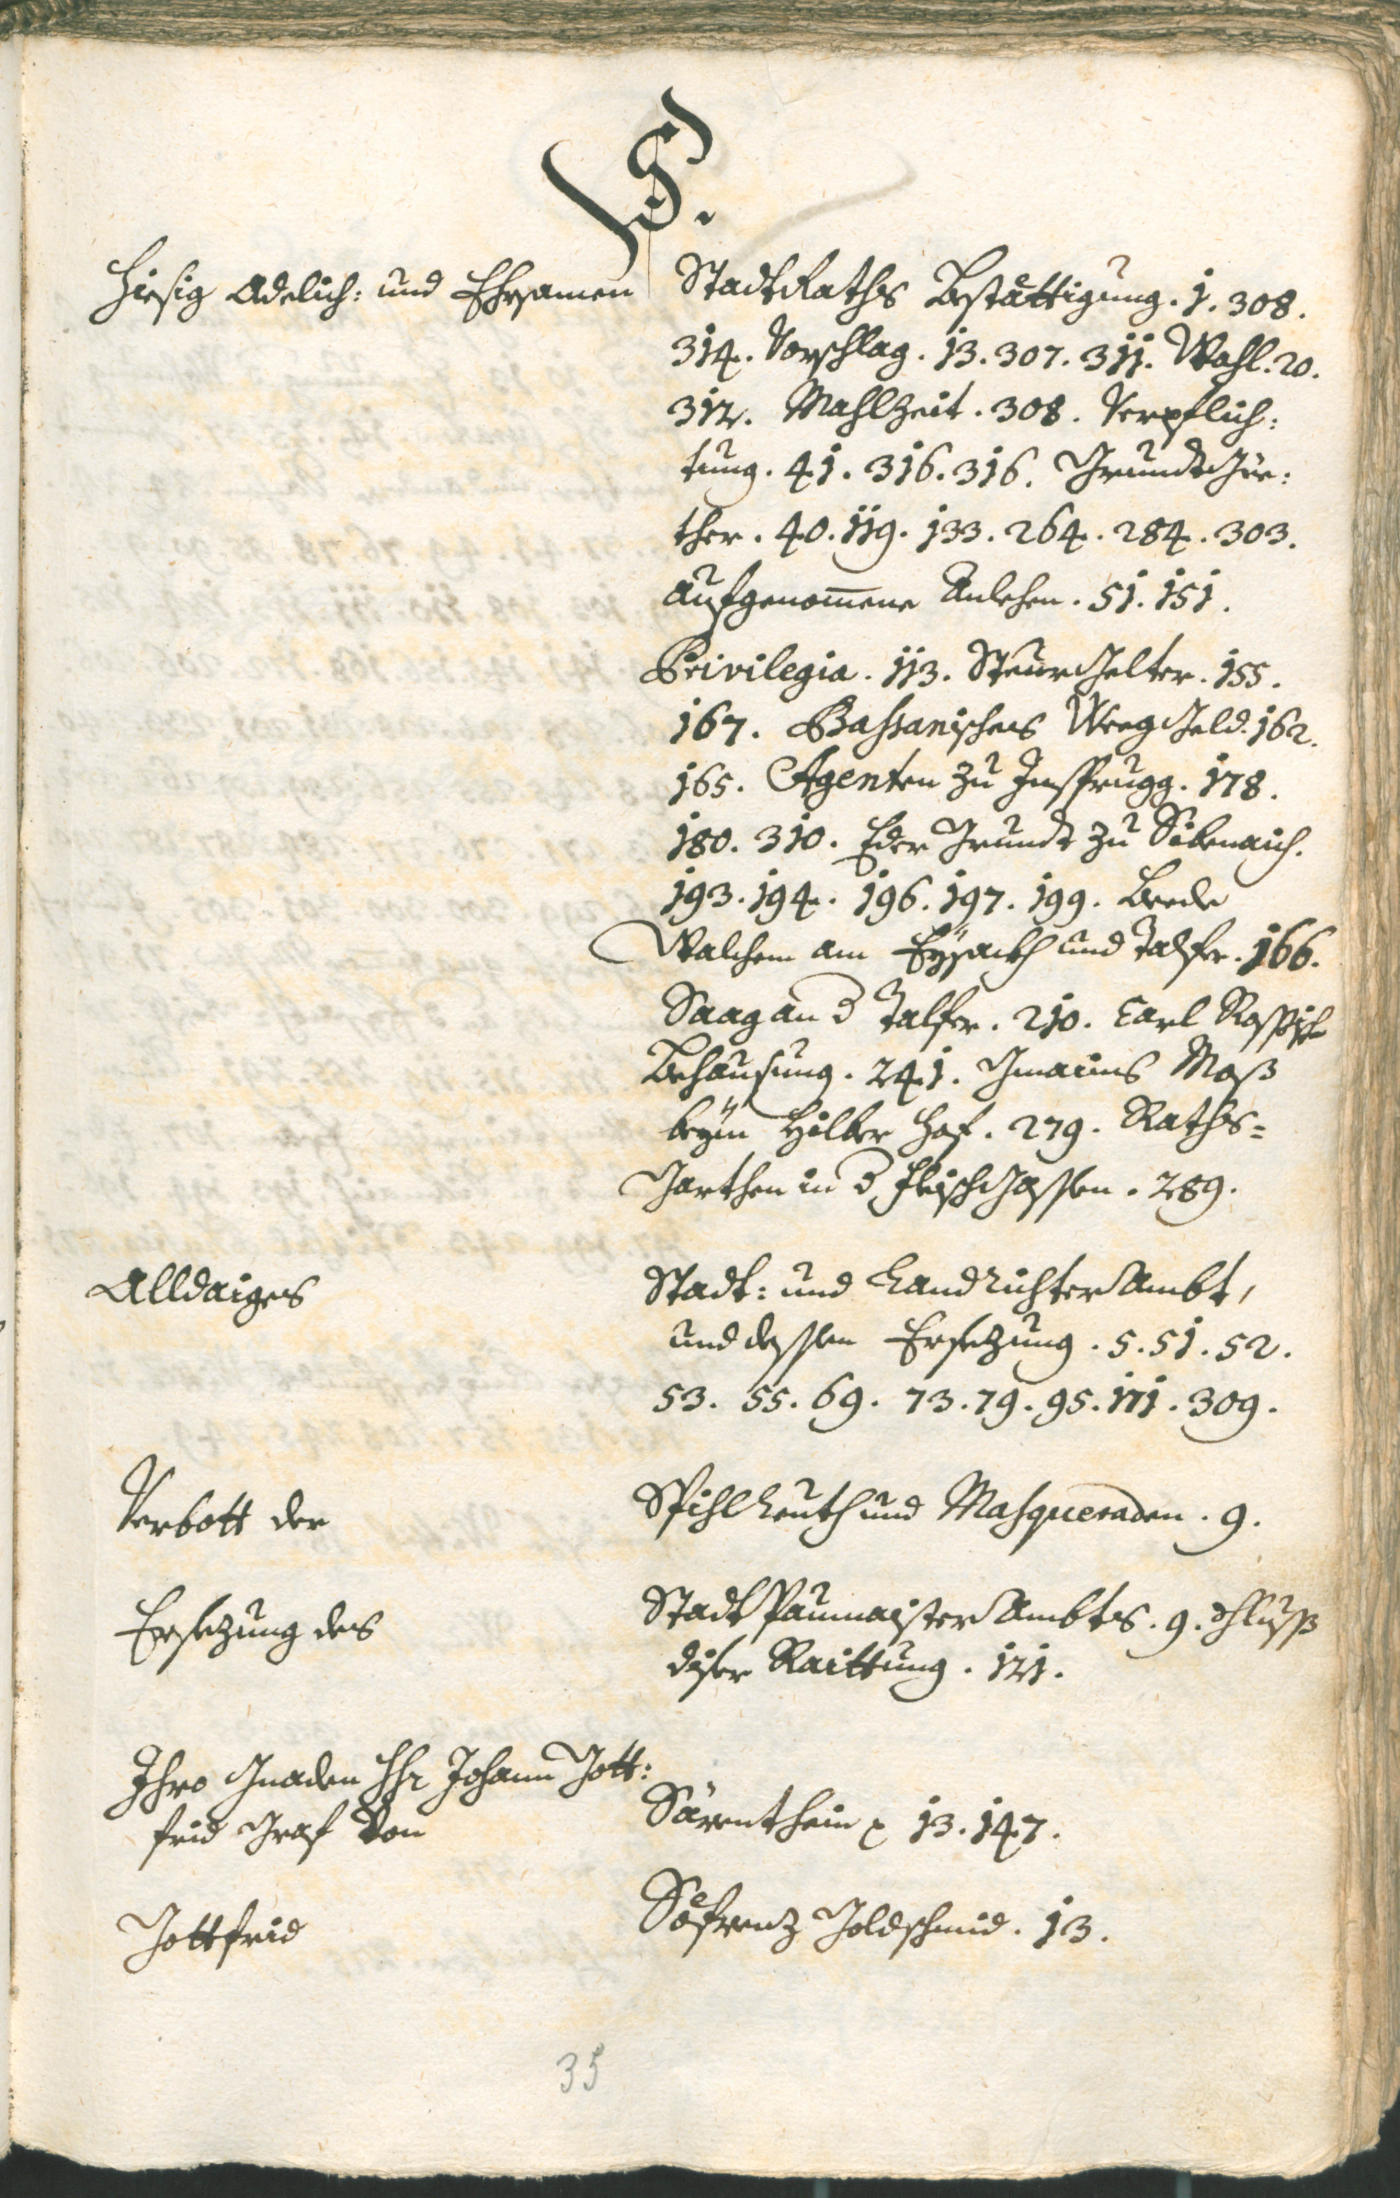 S.
Hiesig Adelich: und Ehrsamen StadtRaths Bestättigung. 1. 308.
314. Vorschlag. 13. 307. 311. Wahl. 20.
312. Mahlzeit. 308. Verpflich:
tung. 41. 316. 316. GrundtGüe:
ther. 40. 119. 133. 264. 284. 303.
aufgenom̄ene Anlehen. 51. 151.
Privilegia. 113. SteurGelter. 155.
167. Bassanisches WeegGeld. 162.
165. Agenten zu Insprugg. 178.
180. 310. Eder Grundt zu Sibenaich.
193. 194. 196. 197. 199. Beede
Walchen am Eysackh und Talfer. 166.
Saag an d Talfer. 210. Carl
Behausung. 241. Gmaines Moß
beym Hilber Hof. 279. Raths=
Garthen in d fleischGassen. 289.
Alldaiges Stadt: und LandRichterAmbt,
und dessen Ersezung. 5. 51. 52.
53. 55. 69. 73. 79. 95. 171. 309.
Verbott der Spihlleuth und Masqueraden. 9.
Ersezung des StadtPaumaisterAmbts. 9. Schluss
diser Raittung. 121.
Ihro Gnaden Hr Johann Gott:
frid Graf Von Särenthein 13. 147.
Gottfrid Söfrenz Goldschmid. 13.
35